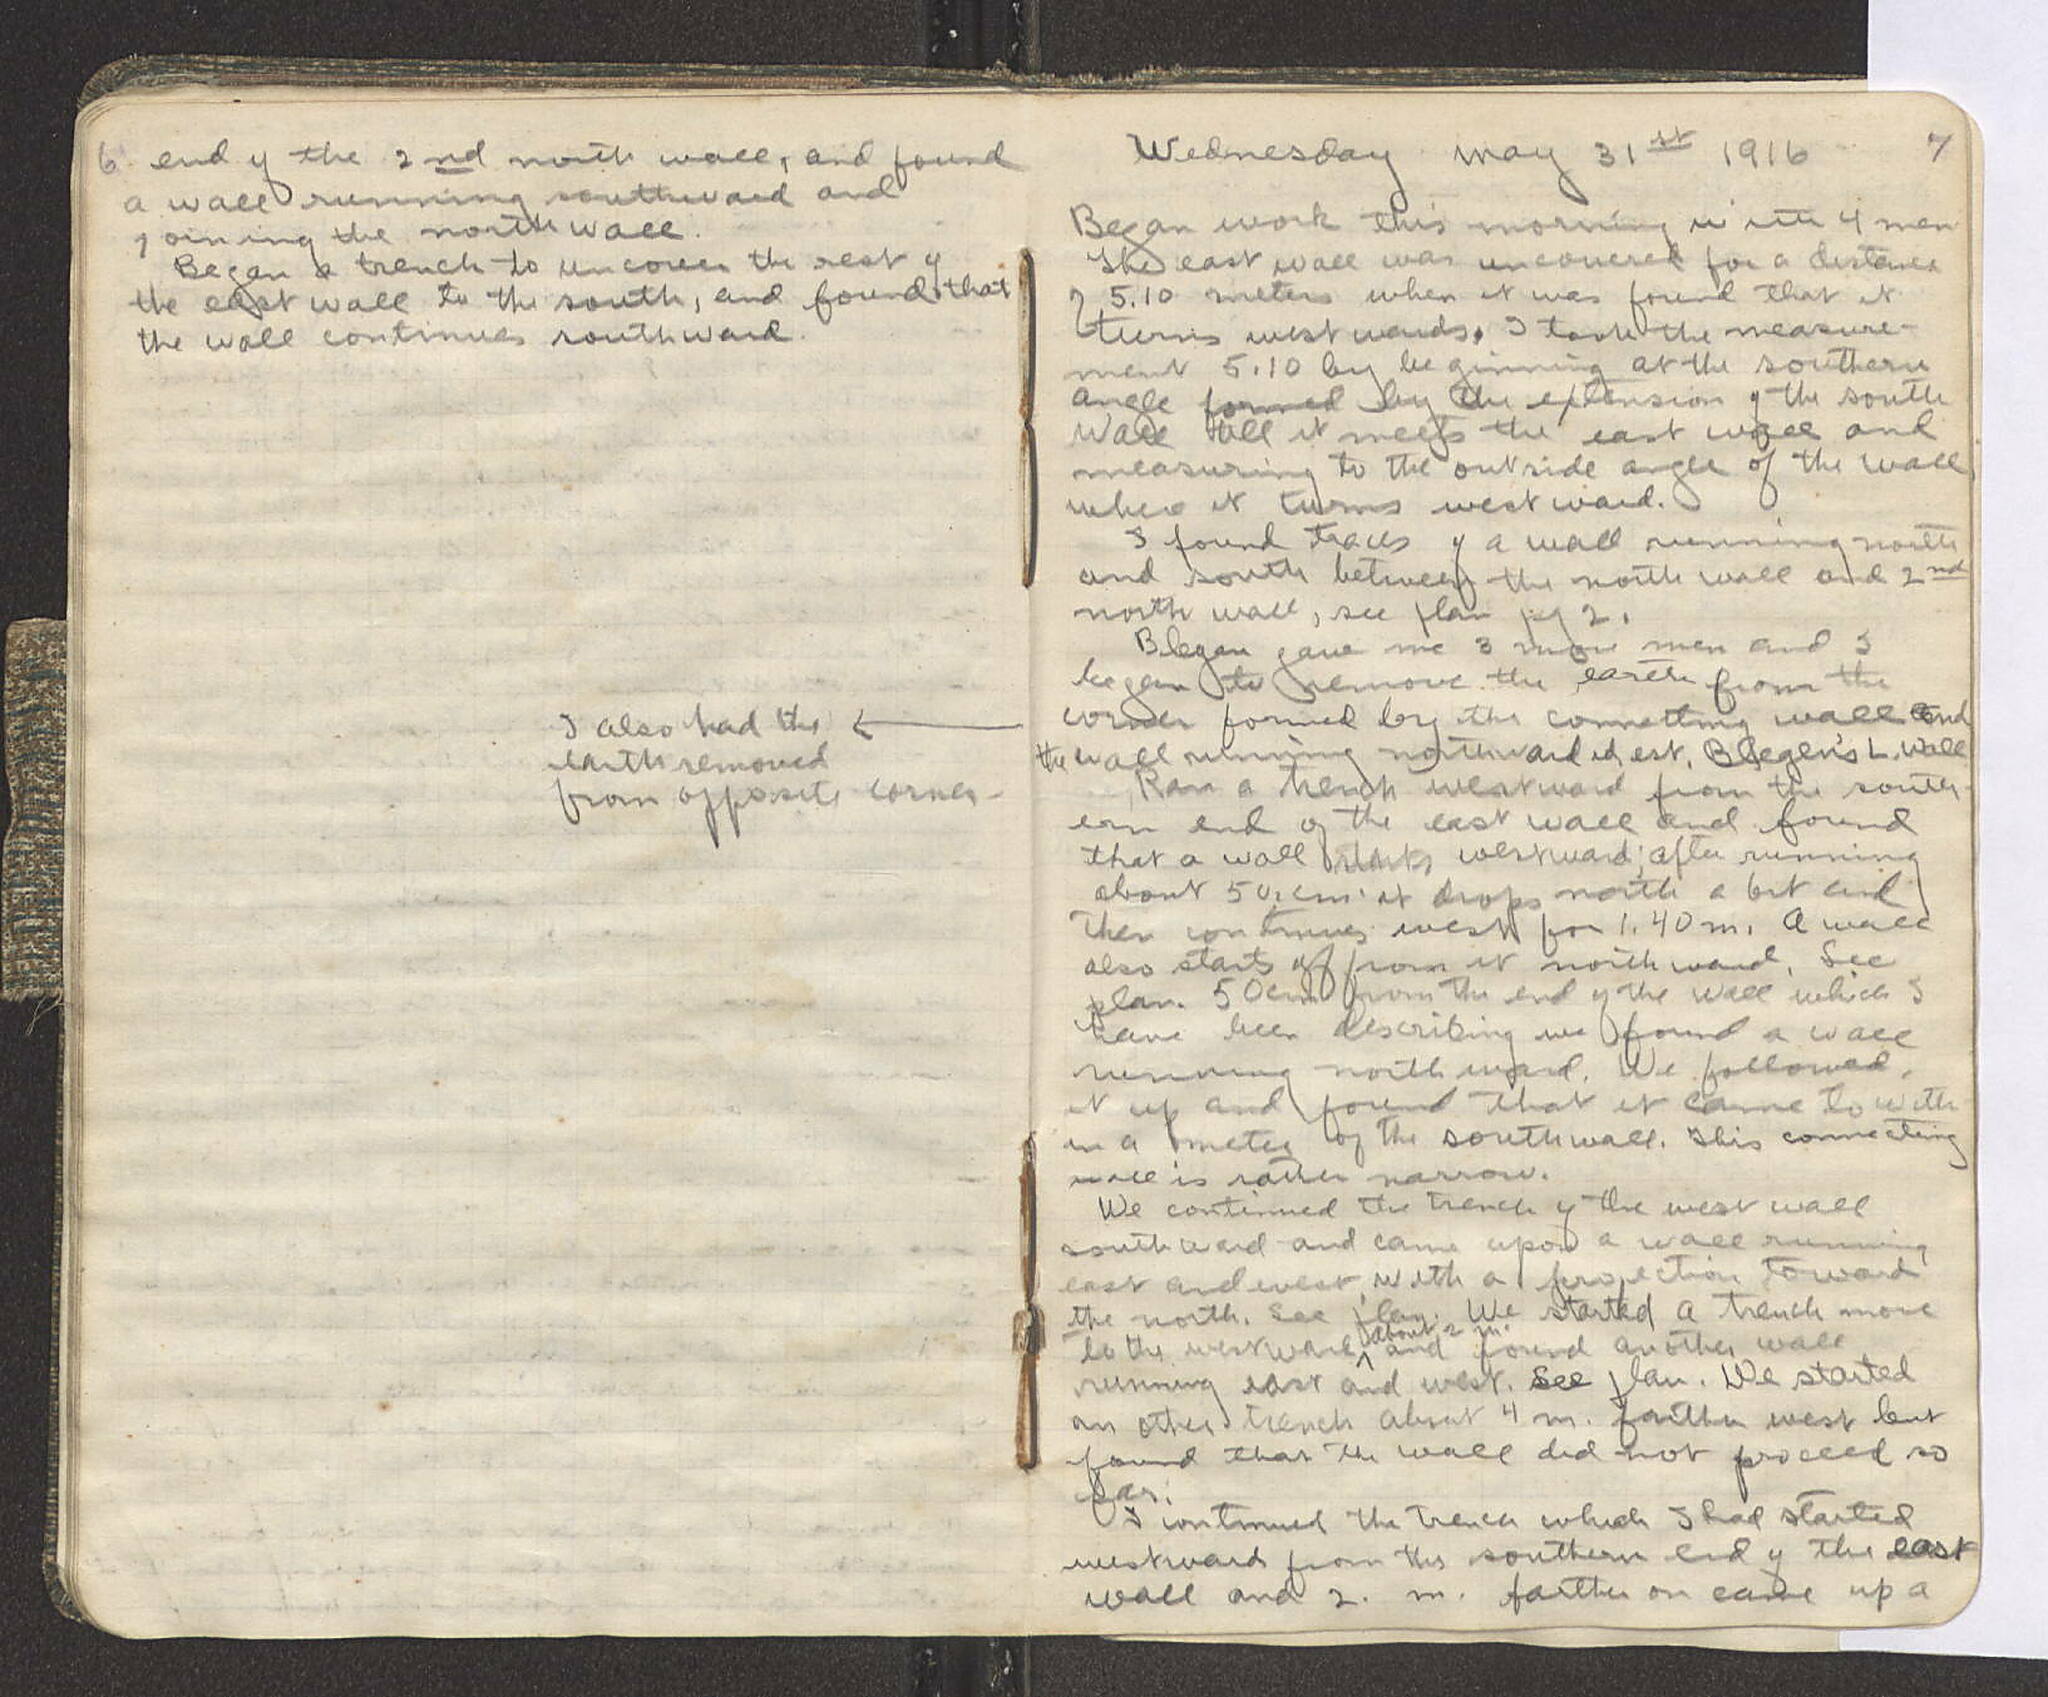 6 end of the 2nd north wall, and found
a wall running southward and
joining the north wall.
Began a trench to uncover the rest of
the east wall to the south, and found that
the wall continues southward.
I also had the ←
earth removed
from opposite corner-
Wednesday May 31st 1916 7
Began work this morning with 4 men
The east wall was uncovered for a distance
of 5.10 meters when it was found that it
turns westwards. I took the measure-
ment 5.10 by beginning at the southern
angle formed by the extension of the south
wall till it meets the east wall and
measuring to the outside angle of the wall
where it turns westward.
I found traces of a wall running north
and south between the north wall and 2nd
north wall, see plan pg 2.
Blegen gave me 3 more men and I
began to remove the earth from the
corner formed by the connecting wall and
the wall running northward i.e. Blegen's L. Wall
Ran a trench westward from the south-
ern end of the east wall and found
that a wall starts westward; after running
about 50 cm. it drops north a bit and
then continues west for 1.40 m. A wall
also starts off from it northward. See
plan. 50 cm from the end of the wall which I
have been describing we found a wall
running northward. We followed
it up and found that it came to with-
in a meter of the south wall. This connecting
wall is rather narrow.
We continued the trench of the west wall
southward and came upon a wall running
east and west, with a projection toward
the north. See plan. We started a trench more
to the westward ^ about 2 m. and found another wall
running east and west. See plan. We started
an other trench about 4 m. farther west but
found that the wall did not proceed so
far.
I continued the trench which I had started
westward from the southern end of the east
wall and 2. m. farther on came up a